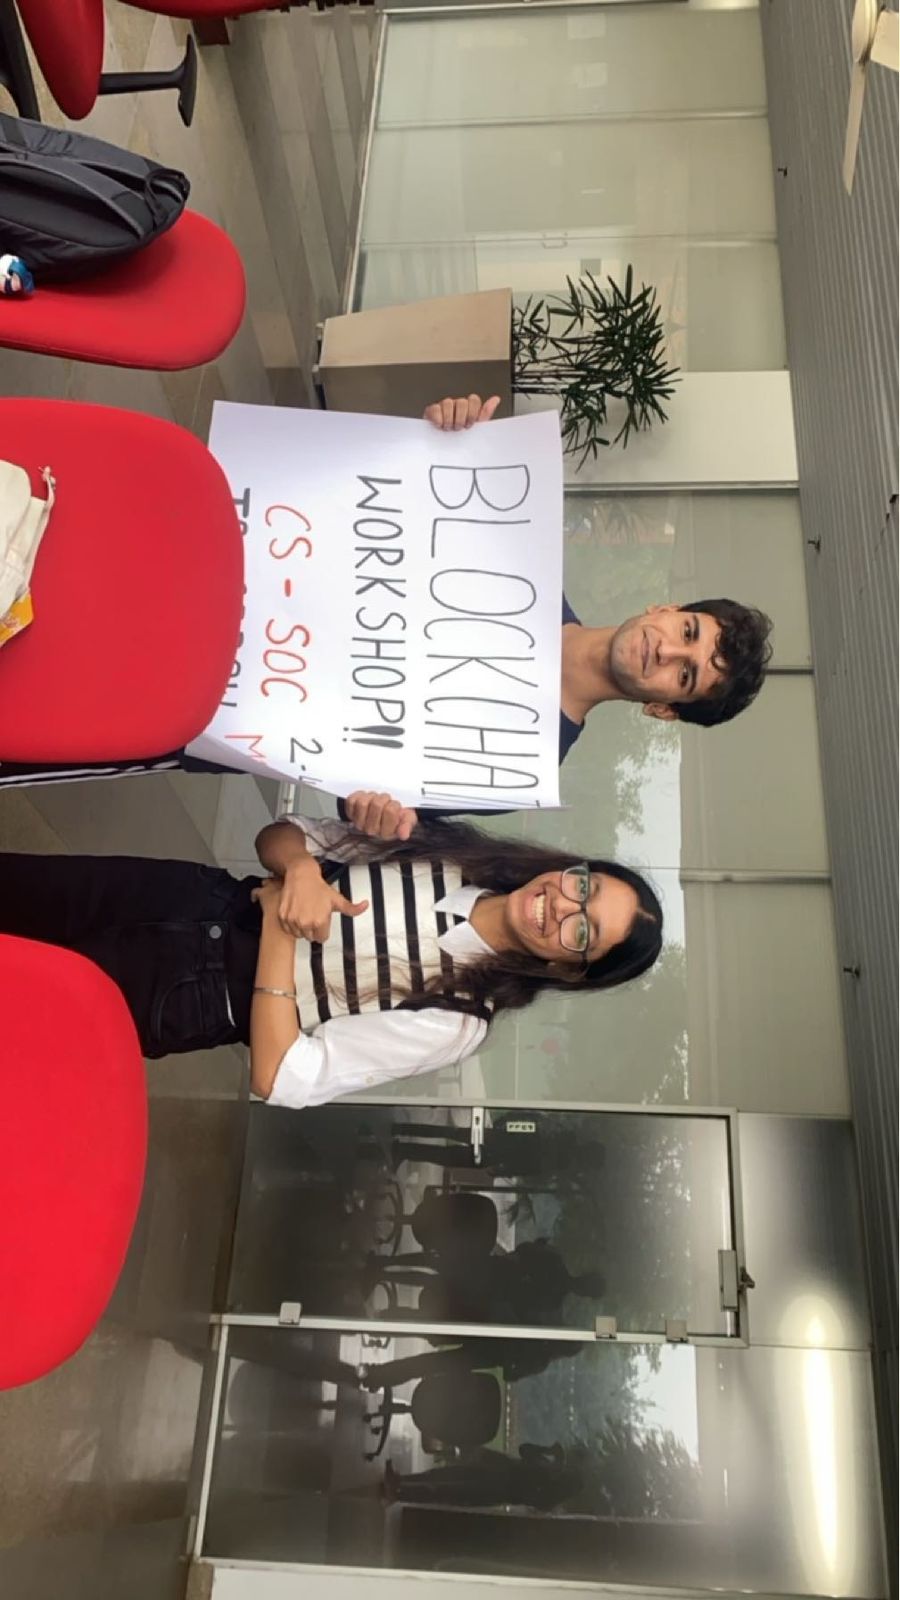 BLOCKCHAI
WORKSHOP!!
CS - SOC